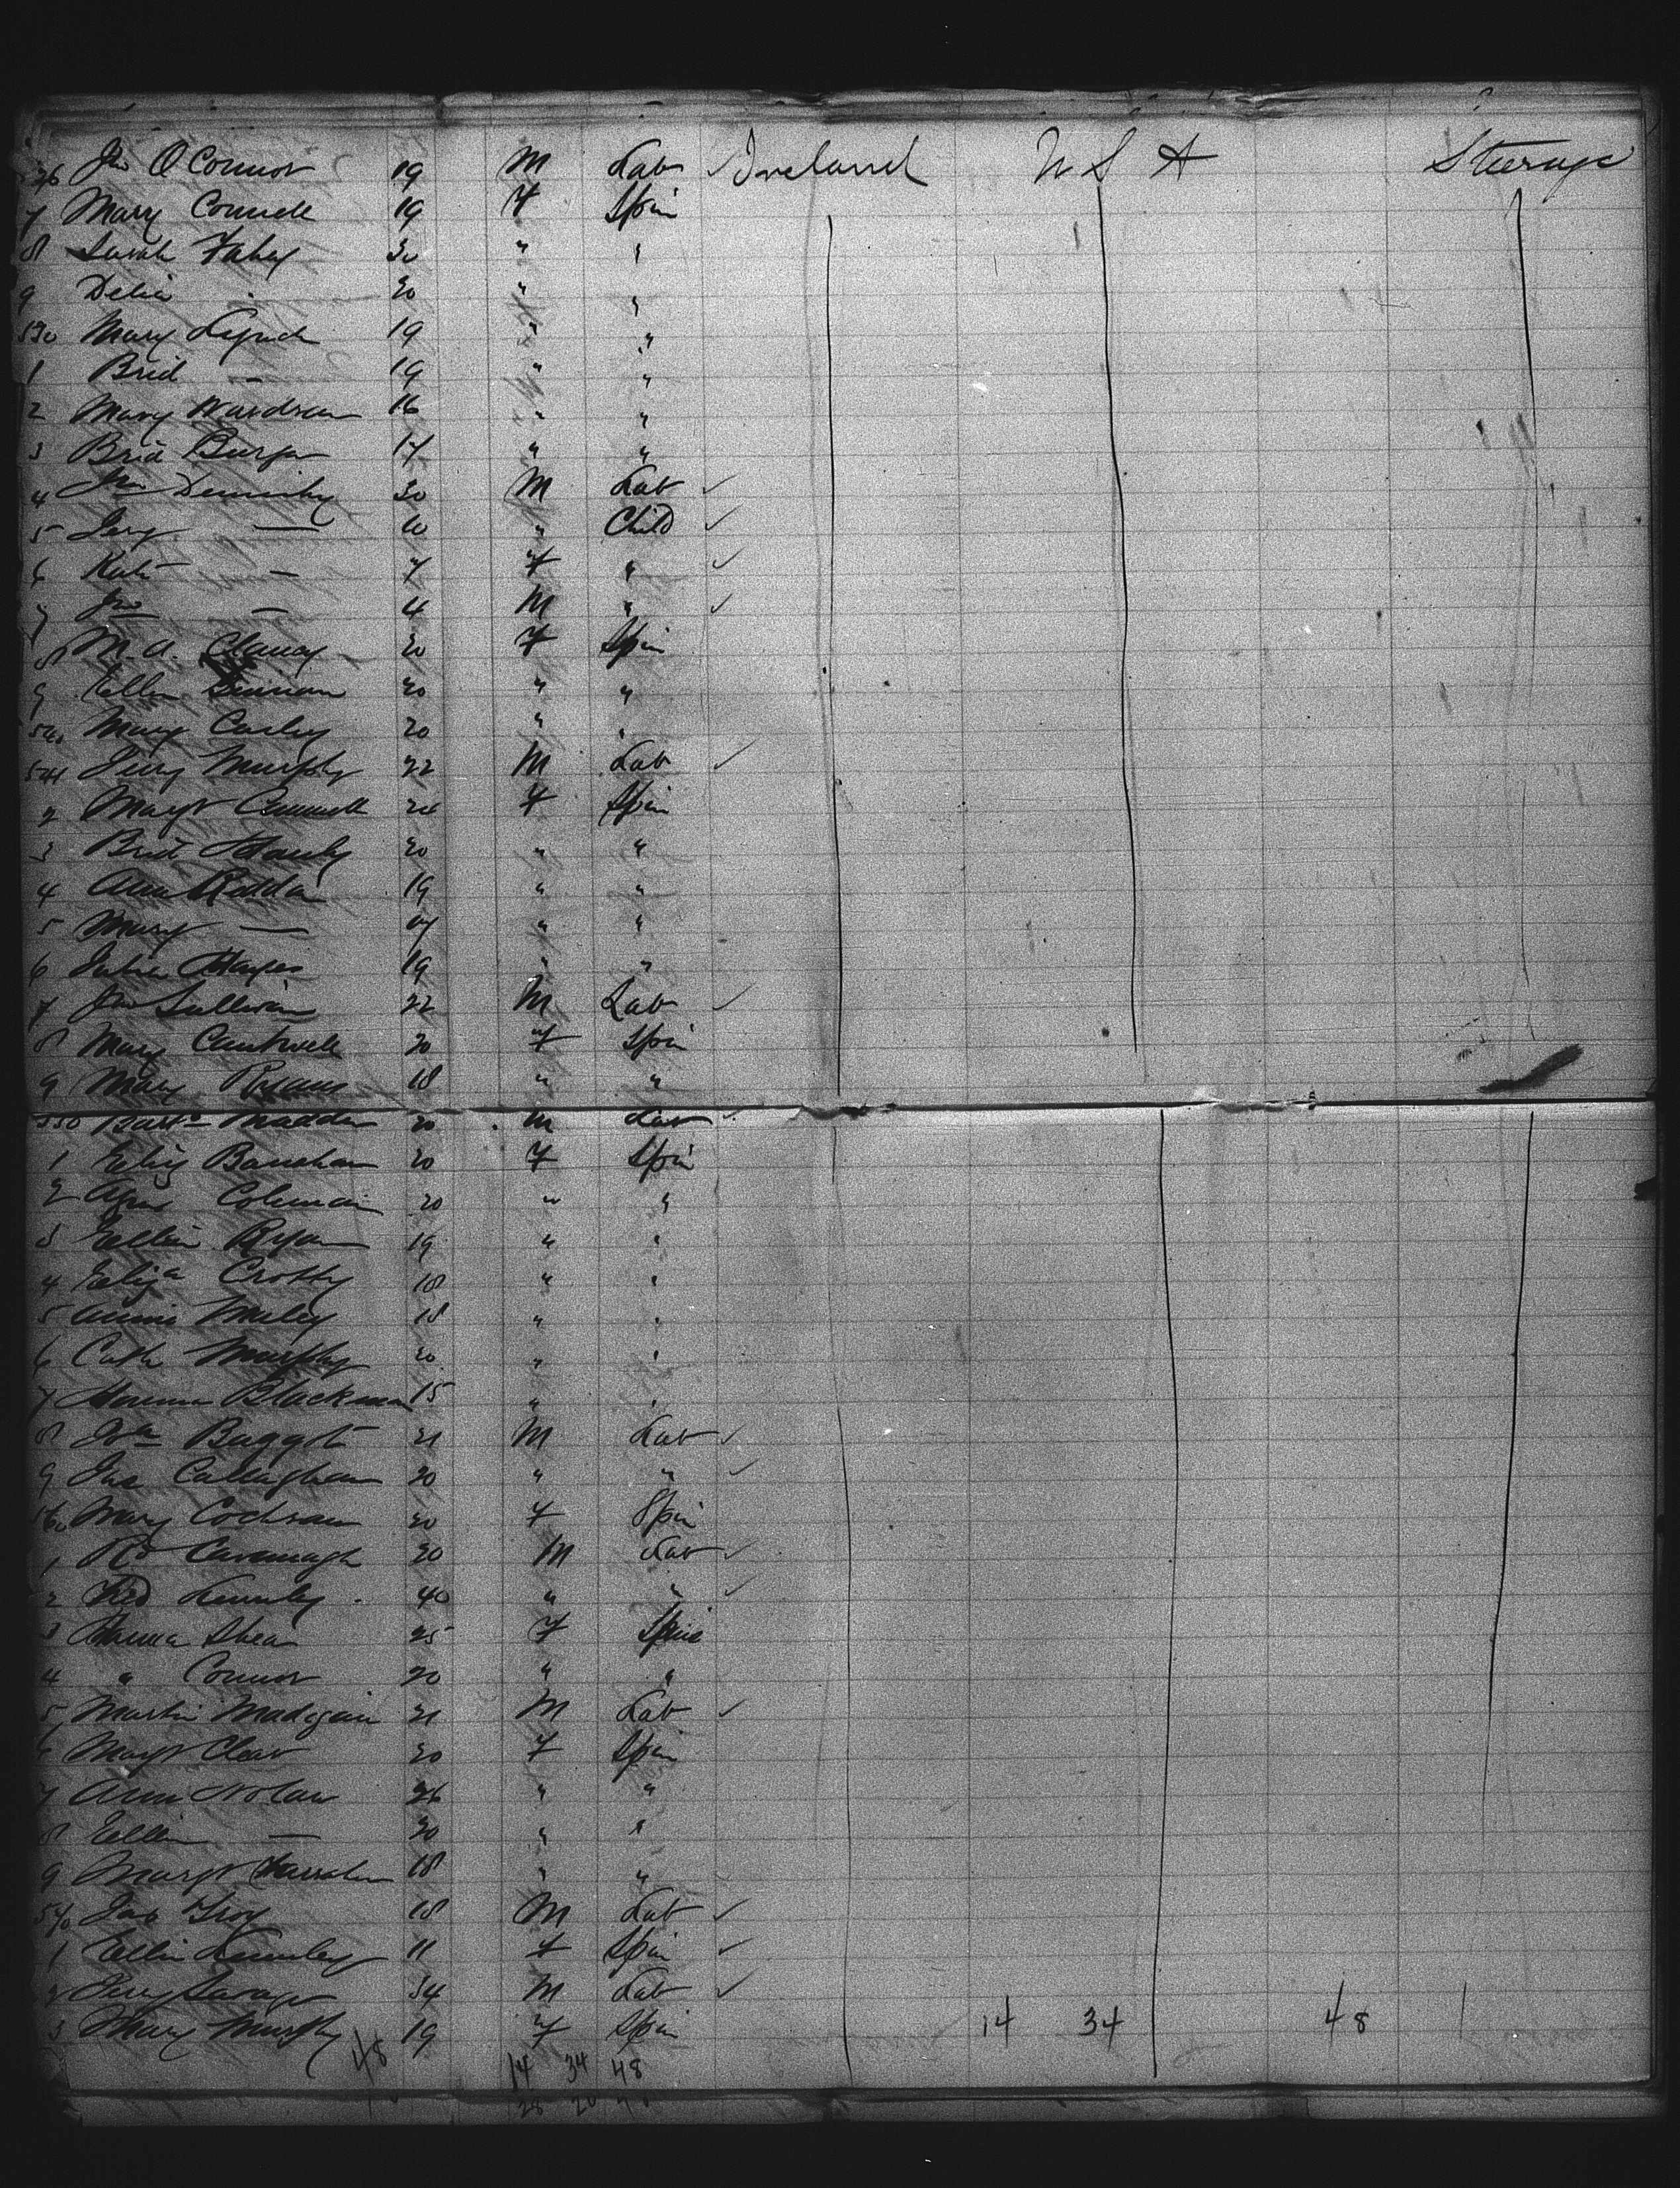 26 Jno O Connor 19 M Lab ✓ Ireland U S A Steerage
7 Mary Connell 19 F Spin
8 Sarah Fahey 30 " "
9 Delia 20 " "
530 Mary Lynch 19 " "
1 Brid — 19 " "
2 Mary 16 " "
3 Brid 17 " "
4 30 M Lab ✓
5 — 10 " Child ✓
6 Kate — 7 F " ✓
7 Jno — 4 M " ✓
8 M. A. Clancy 20 F Spin
9 Ellen 20 " "
540 Mary 20 " "
541 Jerry Murphy 22 M Lab ✓
2 Margt 20 F Spin
3 Brid 20 " "
4 Ann 19 " "
5 Mary — 17 " "
6 Julia Hayes 19 " "
7 Jno Sullivan 22 M Lab ✓
8 Mary Cantwell 20 F Spin
9 Mary 18 " "
550 Bartw Madden 20 M Lab ✓
1 20 F Spin
2 Agnes Coleman 20 " "
3 Ellen Ryan 19 " "
4 Eliza Crotty 18 " "
5 Annie 18 " "
6 Cath Murphy 20 " "
7 Blackman 15 " "
8 Baggot 21 M Lab ✓
9 Callaghan 20 " " ✓
560 Mary Cochran 20 F Spin
1 Rd Cavanagh 20 M Lab ✓
2 40 " " ✓
3 Hanna Shea 25 F Spin
4 " Connor 20 " "
5 Martin Madigan 21 M Lab ✓
6 Margt Clear 20 F Spin
7 Ann Nolan 26 " "
8 Ellen — 20 " "
9 Margt 18 " "
570 18 M Lab ✓
1 Ellen 11 F Spin ✓
2 Jerry Savage 34 M Lab ✓
3 Mary Murphy 19 F Spin 14 34 48
48 14 34 48
28 20